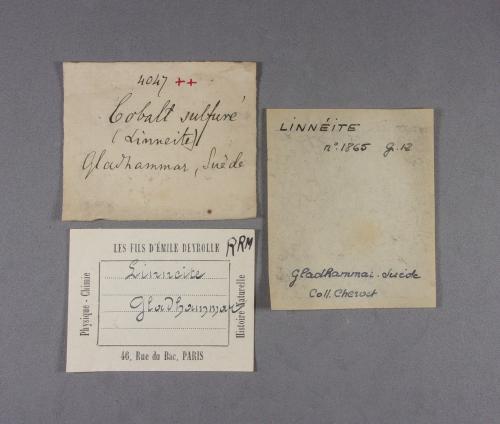 4047 ++
Cobalt sulfuré
(Linneite)
Gladhammar, Suède
LINNÉITE
n°. 1865 g. 12
Gladhammar. Suède
Coll.
LES FILS D'ÉMILE DEYROLLE
RRM
Physique - Chimie
Linneite
Gladhammar
Histoire Naturelle
46, Rue du Bac, PARIS